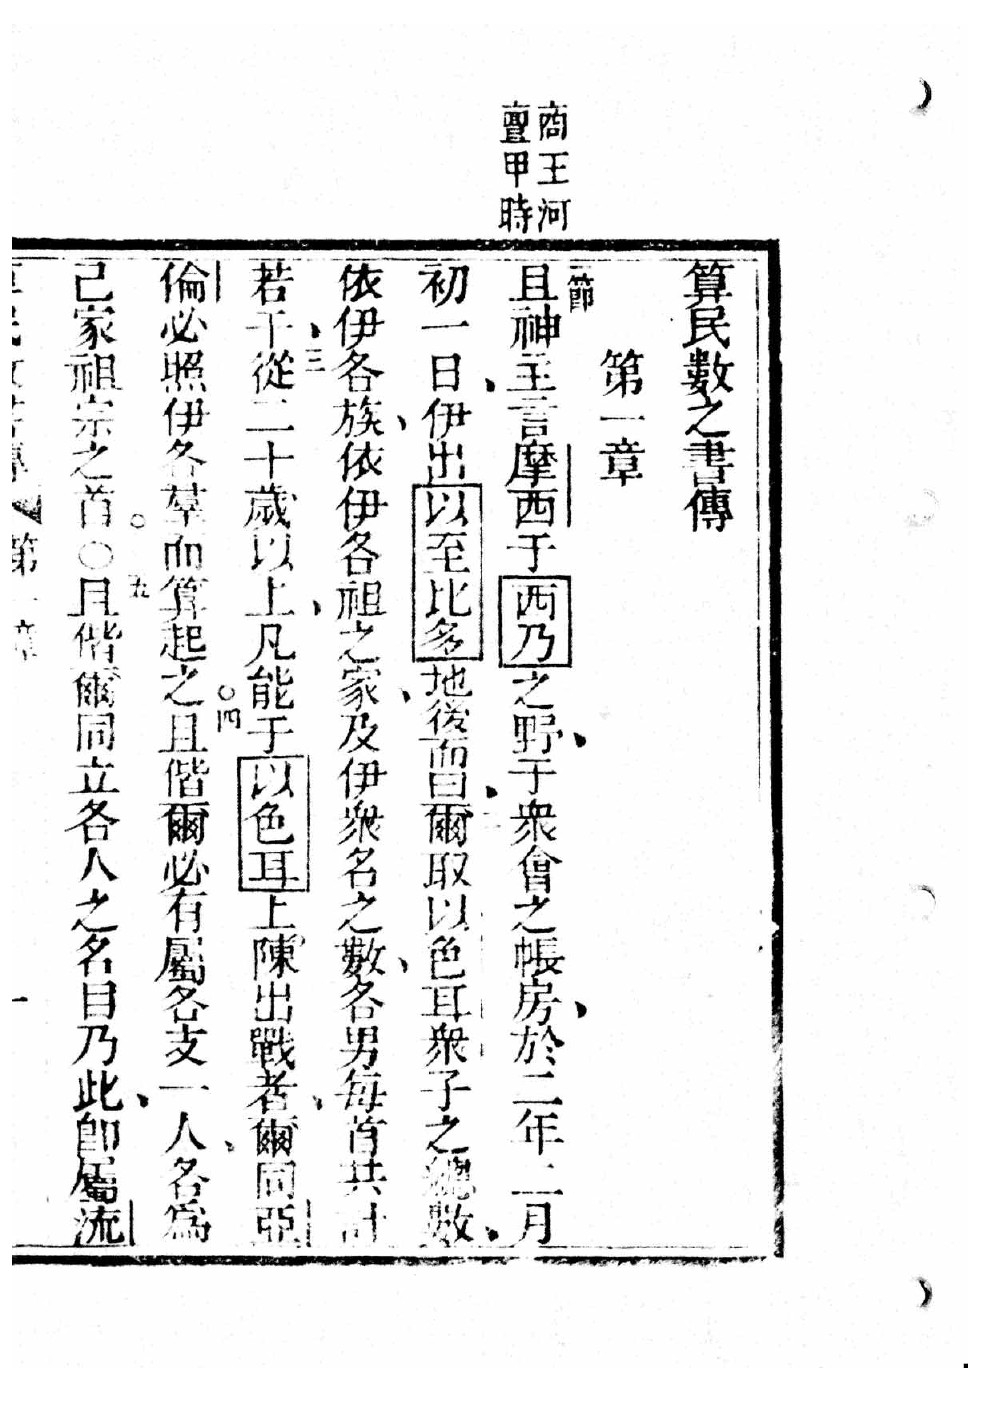 商王河
亶甲時
算民數之書傳
第一章
節
且神主言摩西于西乃之野、于衆會之帳房、於二年二月
初一日、伊出以至比多地後而曰、爾取以色耳衆子之總數、
依伊各族、依伊各祖之家、及伊衆名之數、各男每首共計
若干、三從二十歲以上、凡能于以色耳上陳出戰者、爾同亞
倫必照伊各羣而算起之。四且偕爾必有屬各支一人、各為
己家祖宗之首。○五且偕爾同立各人之名目乃此、卽屬流
第一章
一